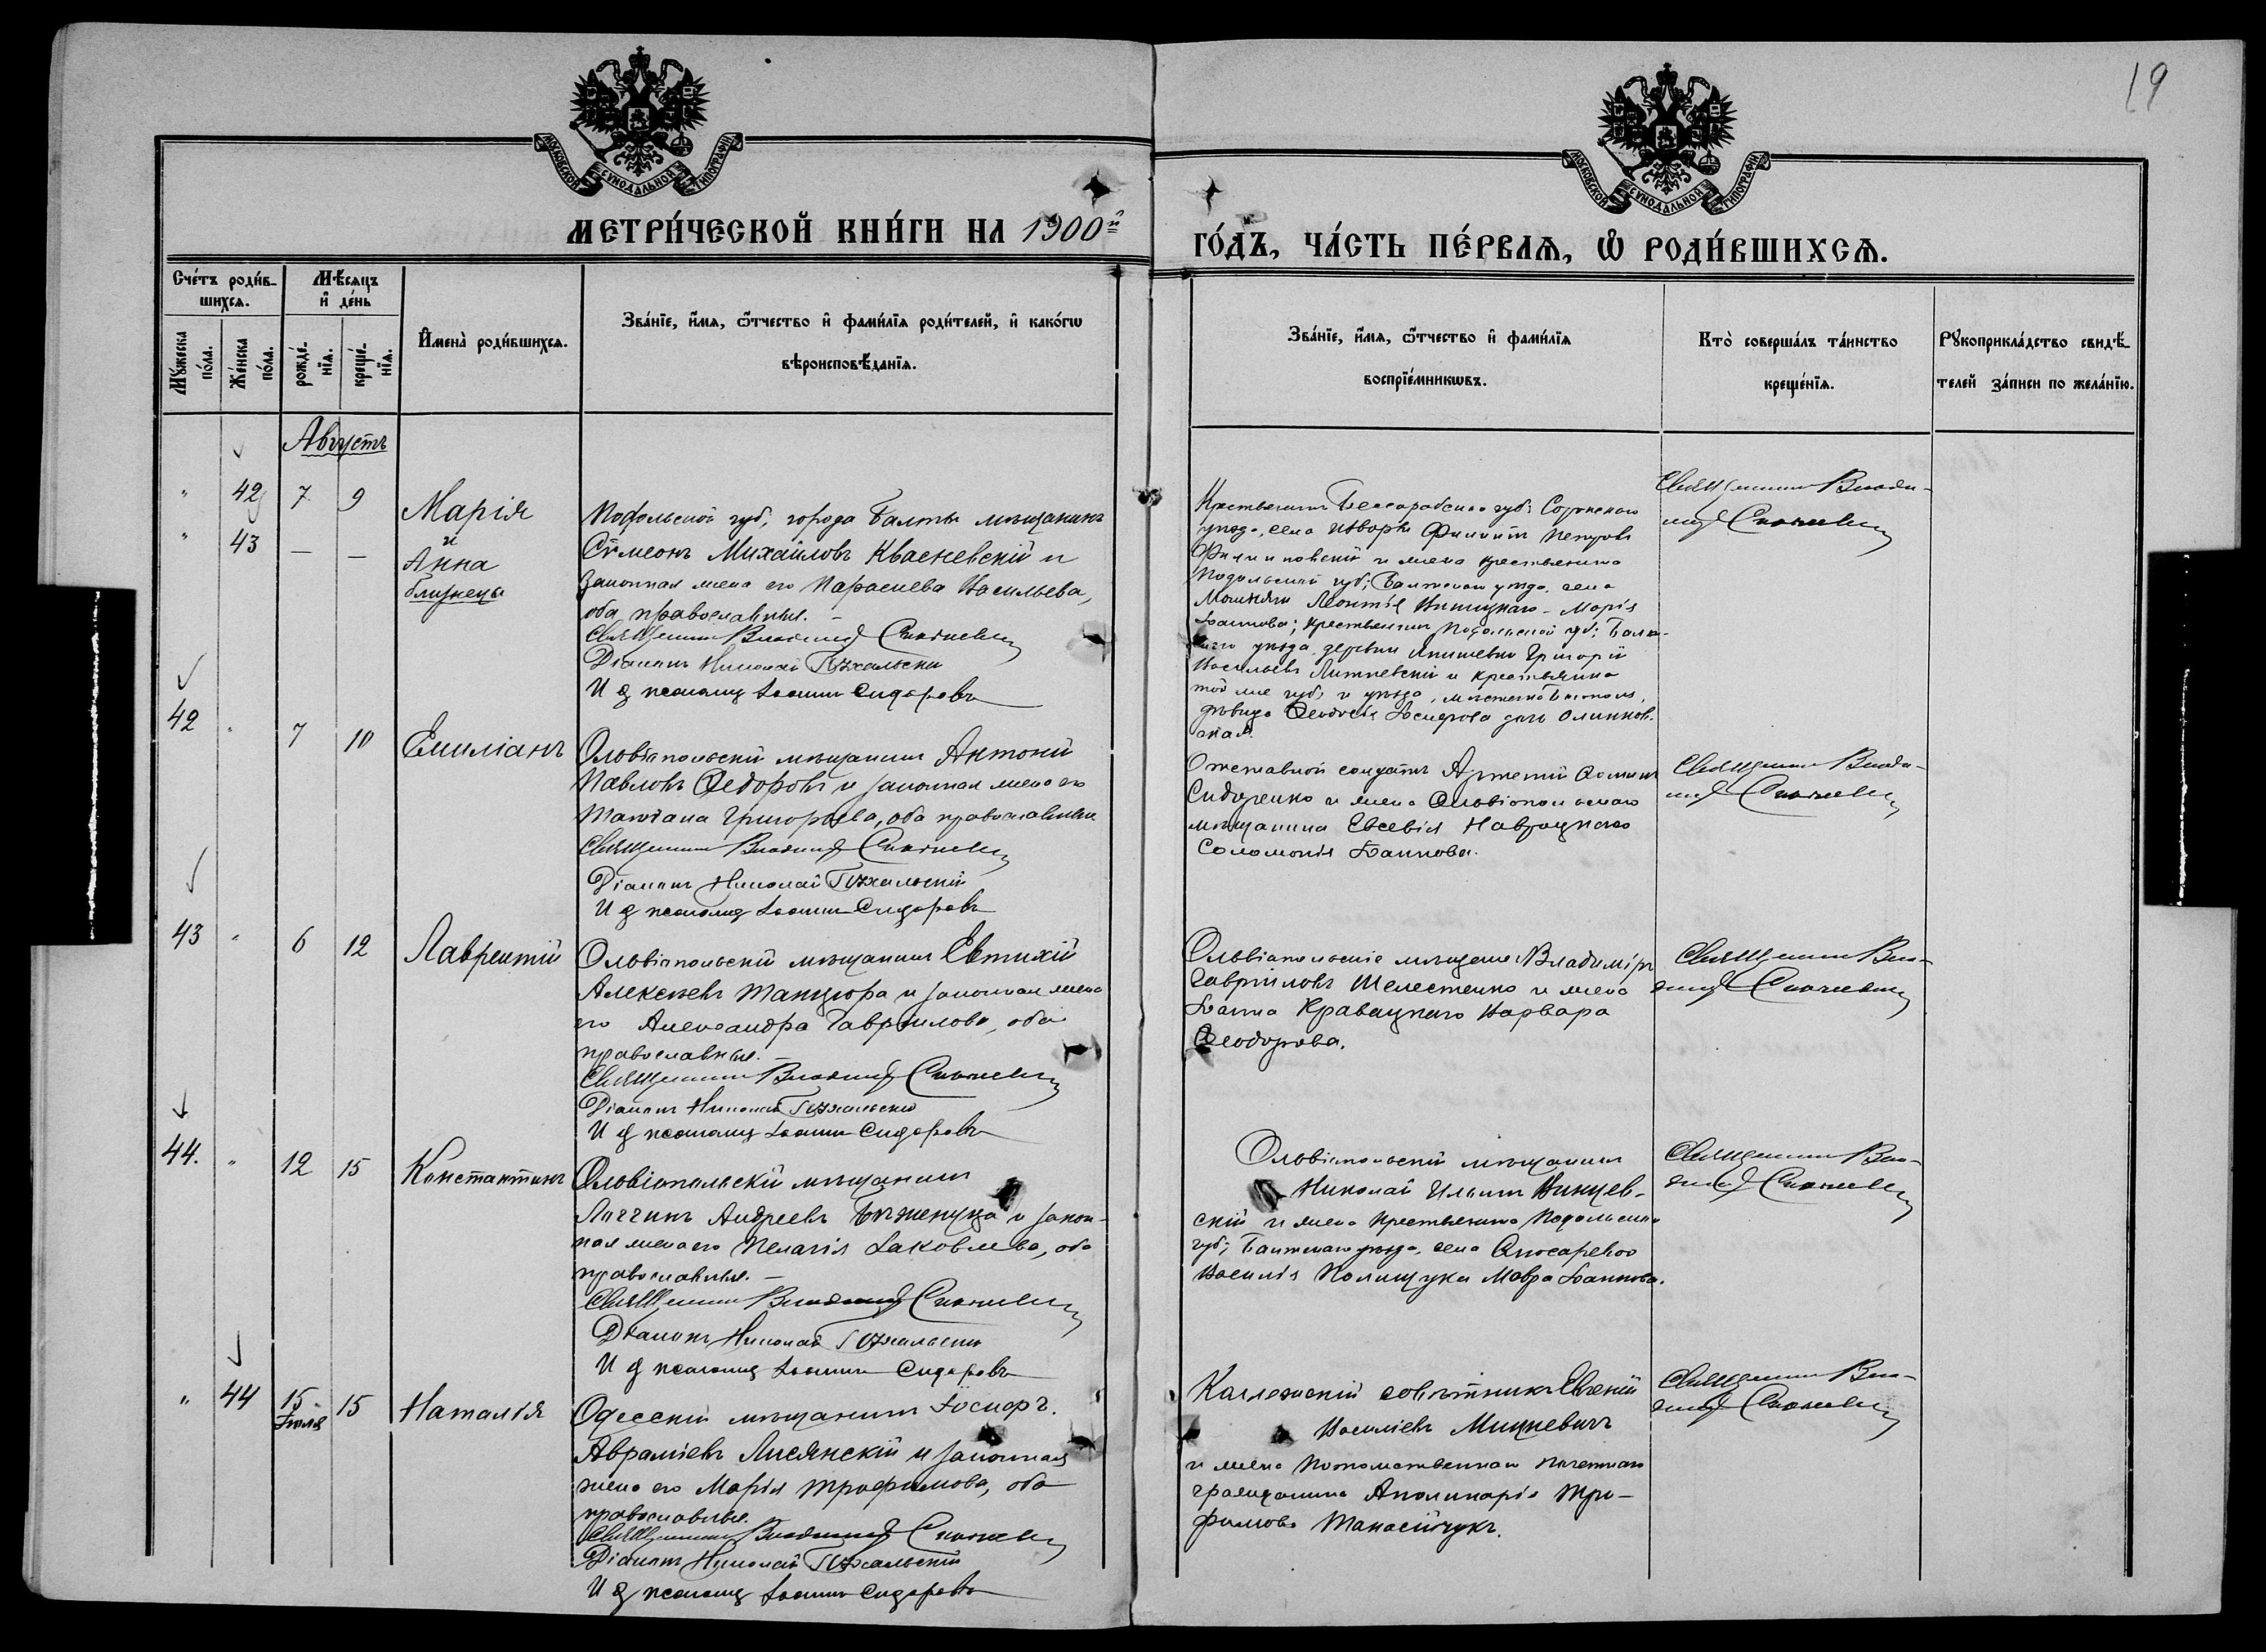 19
МОСКОВСКОЙ СѴНОДАЛЬНОЙ ТИПОГРАФІИ
МОСКОВСКОЙ СѴНОДАЛЬНОЙ ТИПОГРАФІИ
МЕТРИ́ЧЕСКОЙ КНИ́ГИ НА 1900й
ГО́ДЪ, ЧА́СТЬ ПЕ́РВАЯ, Ѡ РОДИ́ВШИХСЯ.
Сче́тъ роди́в-
шихся.
Мѣ́сяцъ
и де́нь
Мꙋ́жеска
по́ла.
Же́нска
по́ла.
рожде́-
нїя.
креще́-
нїя.
Имена̀ роди́вшихся.
Зва́нїе, и́мя, ѻ́тчество и фами́лїя роди́телей, и како́гѡ
вѣроисповѣ́данїя.
Зва́нїе, и́мя, ѻ́тчество и фами́лїя
воспрїе́мникѡвъ.
Кто̀ соверша́лъ та́инство
креще́нїя.
Рꙋкоприкла́дство свидѣ́-
телей за́писи по жела́нїю.
Августъ
" 42 7 9
" 43 — —
Марія
и
Анна
близнецы
Подольской губ; города Балты мѣщанинъ
Сѵмеонъ Михайловъ Квасневскій и
законная жена его Параскева Васильева,
оба православные. —
Священникъ Владимір
Діаконъ Николай
И д псаломщ Іоаннъ Сидоровъ
Крестьянинъ Бессарабской губ; Сорокскаго
уѣзда, села Филиппъ Петровъ
и жена крестьянина
Подольской губ; Балтскаго уѣзда, села
Леонтія Марія
Іоаннова; крестьянинъ Подольской губ; Балт-
скаго уѣзда, деревни Григорій
Васильевъ и крестьянина
той же губ; и уѣзда, мѣстечка
дѣвица Ѳеодосія дочь
Священникъ Влади-
мір
42 " 7 10
Емиліанъ
Ольвіопольскій мѣщанинъ Антоній
Павловъ Ѳедоровъ и законная жена его
Татіана Григорьева, оба православные
Священникъ Владимір
Діаконъ Николай
И д псаломщ Іоаннъ Сидоровъ
Отставной солдатъ Артемій
Сидоренко и жена Ольвіопольскаго
мѣщанина Евсевія Навроцкаго
Соломонія Іоаннова.
Священникъ Влади-
мір
43 " 6 12
Лаврентій
Ольвіопольскій мѣщанинъ Евтихій
Алексѣевъ Танцюра и законная жена
его Александра Гавріилова, оба
православные. —
Священникъ Владимір
Діаконъ Николай
И д псаломщ Іоаннъ Сидоровъ
Ольвіопольскіе мѣщане: Владиміръ
Гавріиловъ Шелестенко и жена
Іоанна Кравацкаго Варвара
Ѳеодорова.
Священникъ Вла-
димір
44. " 12 15
Константинъ
Ольвіопольскій мѣщанинъ
Андреевъ и закон-
ная жена его Пелагія Іаковлева, оба
православные. —
Священникъ Владимір
Діаконъ Николай
И д псаломщ Іоаннъ Сидоровъ
Ольвіопольскій мѣщанинъ
Николай Ильинъ Винцев-
скій и жена крестьянина Подольской
губ; Балтскаго уѣзда, села
Василія Полищука Мавра Іоаннова.
Священникъ Вла-
димір
" 44 15 15
Іюля
Наталія
Одесскій мѣщанинъ
Авраміевъ Лисянскій и законная
жена его Марія Трофимова, оба
православные.
Священникъ Владимір
Діаконъ Николай
И д псаломщ Іоаннъ Сидоровъ
Коллежскій совѣтникъ Евгеній
Василіевъ Мицкевичъ
и жена потомственнаго почетнаго
гражданина Аполинарія Тро-
фимова Танасійчукъ.
Священникъ Вла-
димір